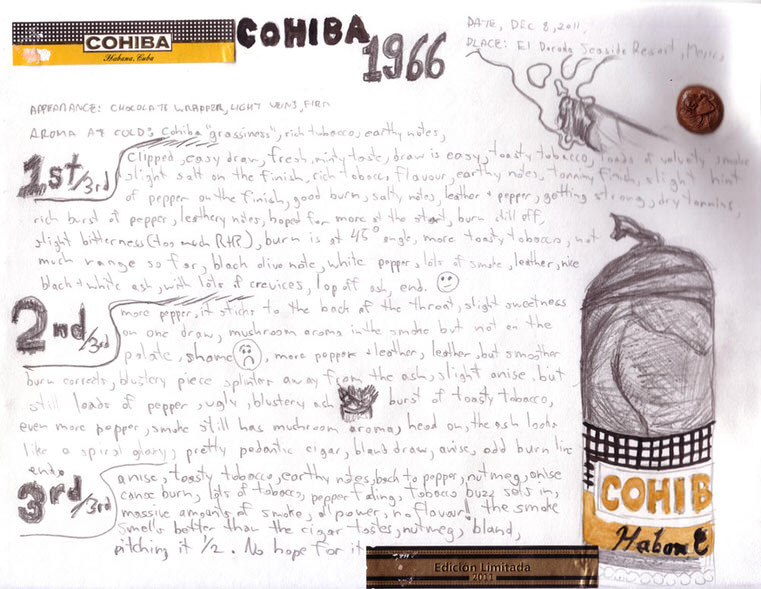 COHIBA
Habana, Cuba
COHIBA
1966
DATE, DEC 8, 2011,
PLACE: El Dorado Seaside Resort, Mexico,
APPEARANCE: CHOCOLATE WRAPPER, LIGHT VEINS, FIRM
AROMA AT COLD: Cohiba "grassiness", rich tobacco, earthy notes,
1st/3rd
Clipped, easy draw, fresh, minty taste, draw is easy, toasty tobacco, loads of velvety smoke
slight salt on the finish, rich tobacco flavour, earthy notes, tannins finish, slight hint
of pepper on the finish, good burn, salty notes, leather + pepper, getting strong, dry tannins,
rich burst of pepper, leathery notes, hoped for more at the start, burn still off,
slight bitterness (too much R+R), burn is at 45° angle, more toasty tobacco, not
much range so far, black olive note, white pepper, lots of smoke, leather, nice
black + white ash, with lots of crevices, lop off ash, end.
2nd/3rd
more pepper, it sticks to the back of the throat, slight sweetness
on one draw, mushroom aroma in the smoke but not on the
palate, shame, more pepper + leather, leather, but smoother
burn corrects, blustery piece splinters away from the ash, slight anise, but
still loads of pepper, ugly, blustery ash burst of toasty tobacco,
even more pepper, smoke still has mushroom aroma, head on, the ash looks
like a spiral glory, pretty pedantic cigar, bland draw, anise, odd burn line
end.
3rd/3rd
anise, toasty tobacco, earthy notes, back to pepper, nutmeg, anise
canoe burn, lots of tobacco, pepper fading, tobacco buzz sets in,
massive amounts of smoke, power, no flavour! the smoke
smells better than the cigar tastes, nutmeg, bland,
pitching it 1/2. No hope for it
COHIB
Haban
Edición Limitada
2011